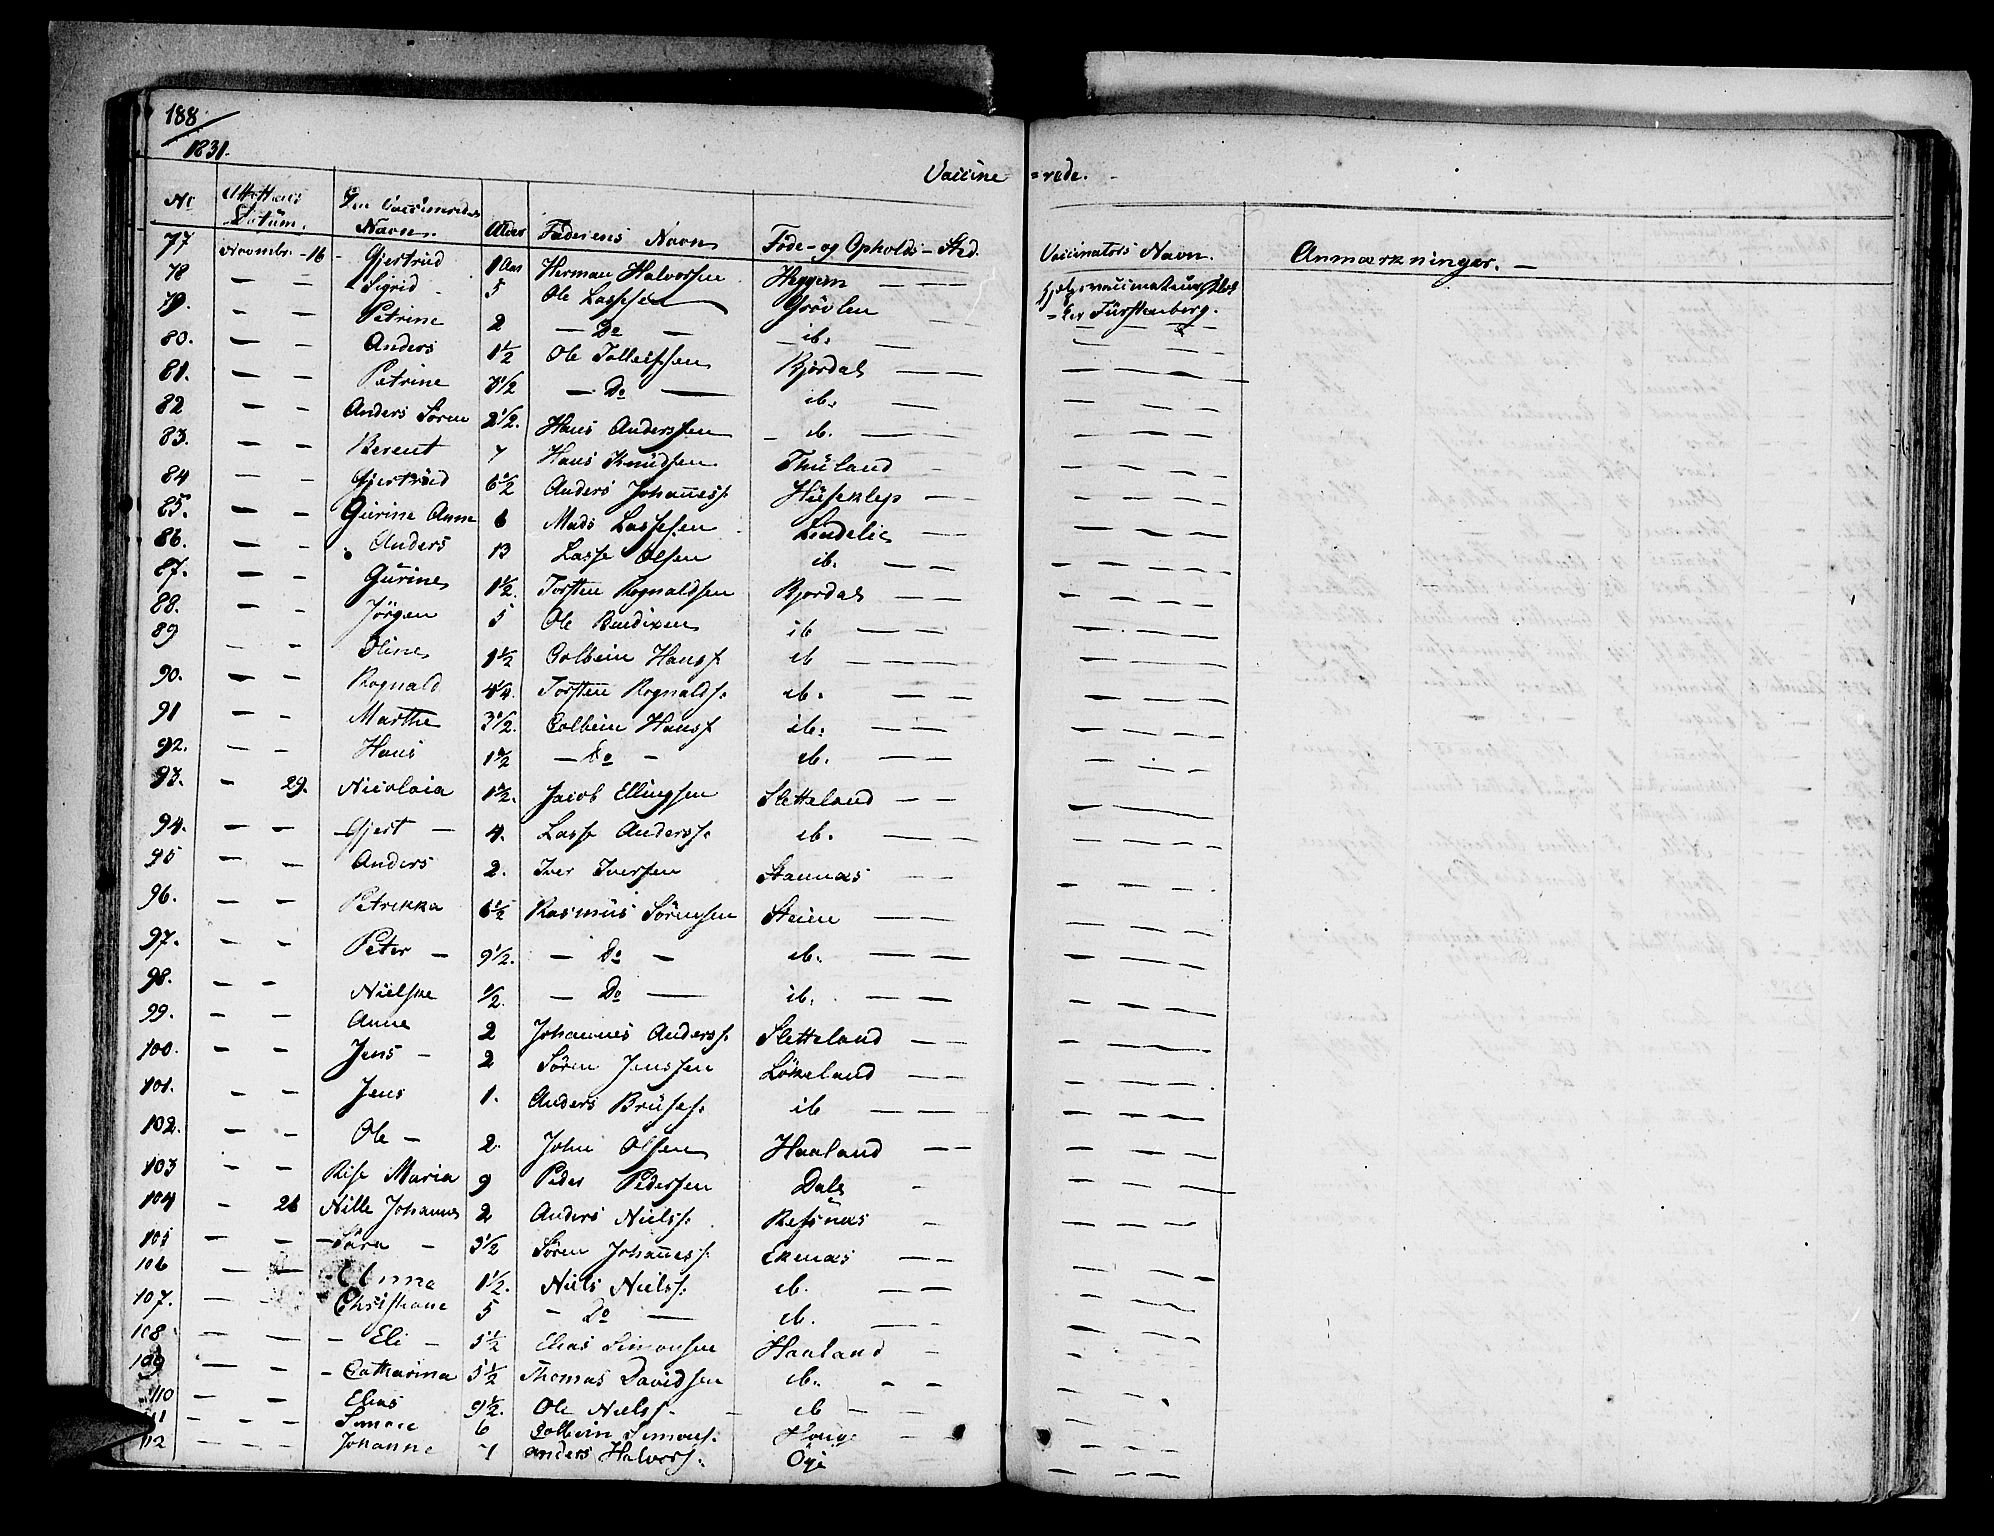 188
1831.
Vaccine =rede.
No Attestens Datum. Den Vaccineredes Navn. Alder Faderens Navn Føde- og Opholds-Sted. Vaccinators Navn. Anmærkninger. —
77 Novembr. -16 - Gjertrud 1 Aar Herman Halvorssen Heggem — —
78 — — Sigrid - 5 Ole Lassesen Grövlen — — Fürstenberg.
79. — — Petrine 2 — Do — — ib. — — — —
80. — — Anders 1½ Ole Tolleifssen Bjordal — — — — —
81. — — Petrine 3½ — Do — ib. — — — —
82 — — Anders Sören 2½. Hans Anderssen — ib. — — — — —
83. — — Berent 7 Hans Knudsen Thuland — — — —
84 — — Gjertrud 6½ Anders Johaness. Huseklep — — — — —
85. — — Gurine Anne 6 Mads Lassesen Lindelie — — — —
86. — - Anders 13 Lasse Olsen ib. — — — — — —
87. — — Gurine 1½ Torsten Rognaldsen Bjordal — — — — —
88. — — Jörgen 5 Ole Bendixen ib — — — — —
89 — — Oline 1½ Colbein Hanss. ib — — — — —
90. — — Rognald 4¼. Torsten Rognalds. ib. — — — — —
91 — — Marthe 3½. Colbein Hanss. ib. — — — — —
92. — — Hans 1½ — Do — ib. — — — — —
93. — 29. Nicolaia 1½. Jacob Ellingsen Sletteland — — — — —
94. — — Gjert — 4. Lasse Anderss. ib. — — — — —
95 — — Anders 2. Iver Iversen Stavnæs — — — — —
96. — — Petrikka 6½ Rasmus Sörensen Steine — — — — —
97. — — Peter — 9½. — Do — ib. — — — — —
98. — — Nielske ½. — Do — ib. — — — — —
99. — — Anne 2 Johannes Anderss. Sletteland — — — — —
100. — — Jens - 2 Sören Jenssen Lökeland — — — — —
101. — — Jens 1. Anders Bruses. ib — — — — —
102. — — Ole - 2. John Olsen Haaland — — — — —
103 — — Maria 9 Peder Pedersen Dale — — — —
104 — 26 Nille Johanne 2 Anders Nielss. Refsnæs — — — —
105 — — Sara - 3½ Sören Johaness. Ekenæs — — — —
106 — — Anna 1½. Niels Nielss. ib. — — — — —
107. — - Christiane 5 - Do — ib. — — — — —
108. — — - Eli - 5½ Elias Simonsen Haaland — — — —
109 — — - Catharina 5½ Thomas Davidsen ib. - — — — —
110 — — Elias 9½. Ole Nielss. - ib — — — — —
111 — — Simon 6 Colbein Simons. Houge — — — —
112 — — Johanne 1 Anders Halvors. Öye — — —